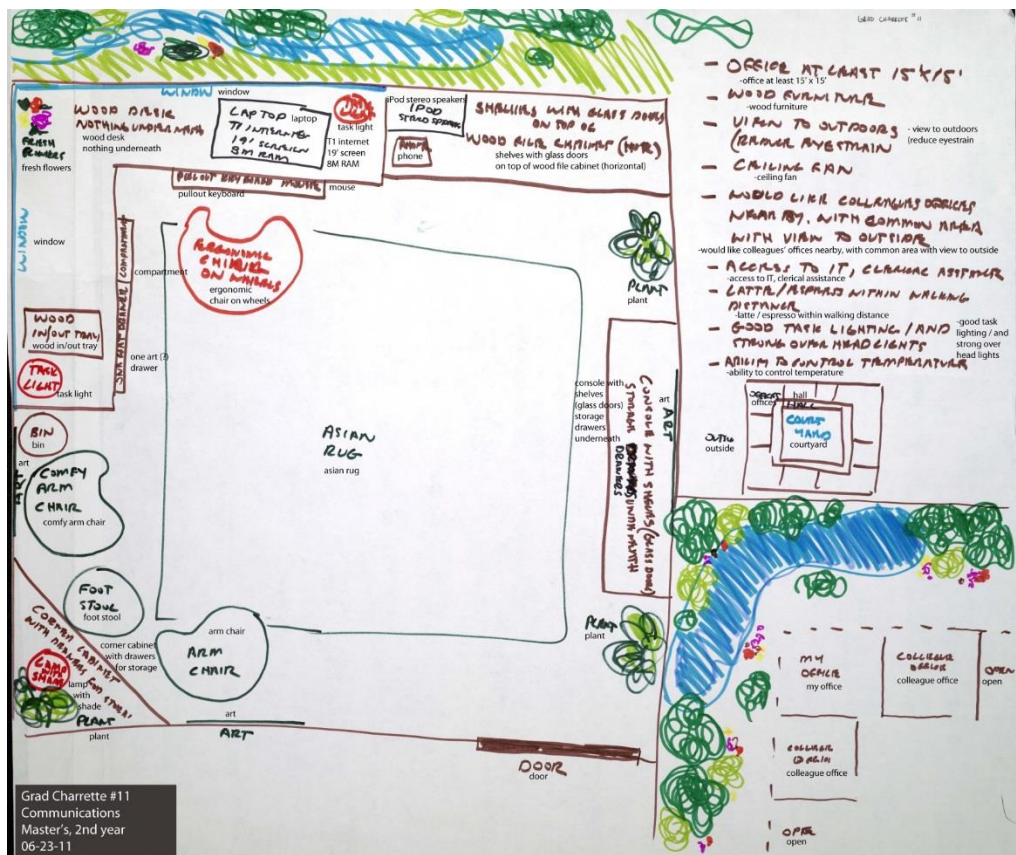 GRAD CHARRETTE #11
WINDOW
window
WOOD DESK
NOTHING UNDERNEATH
wood desk
nothing underneath
FRESH
FLOWERS
fresh flowers
LAPTOP
laptop
T1 INTERNET
19' SCREEN
8M RAM
T1 internet
19' screen
8M RAM
task light
iPod stereo speakers
IPOD
STEREO SPEAKERS
PHONE
phone
SHELVES WITH GLASS DOORS
ON TOP OF
WOOD FILE CABINET (HORZ)
shelves with glass doors
on top of wood file cabinet (horizontal)
PULLOUT KEYBOARD MOUSE
pullout keyboard
mouse
WINDOW
window
compartment
ERGONOMIC
CHAIR
ON WHEELS
ergonomic
chair on wheels
PLANT
plant
WOOD
IN/OUT TRAY
wood in/out tray
TASK
LIGHT
task light
one art (?)
drawer
BIN
bin
art
ART
COMFY
ARM
CHAIR
comfy arm chair
ASIAN
RUG
asian rug
console with
shelves
(glass doors)
storage
drawers
underneath
CONSOLE WITH SHELVES (GLASS DOORS)
STORAGE
DRAWERS
UNDERNEATH
art
ART
FOOT
STOOL
foot stool
CORNER CABINET
WITH DRAWERS FOR STORAGE
corner cabinet
with drawers
for storage
arm chair
ARM
CHAIR
PLANT
plant
LAMP
SHADE
lamp
with
shade
PLANT
plant
art
ART
DOOR
door
- OFFICE AT LEAST 15'X15'
-office at least 15' x 15'
- WOOD FURNITURE
-wood furniture
- VIEW TO OUTDOORS
(REDUCE EYESTRAIN)
- view to outdoors
(reduce eyestrain
- CEILING FAN
-ceiling fan
- WOULD LIKE COLLEAGUES OFFICES
NEAR BY, WITH COMMON AREA
WITH VIEW TO OUTSIDE
-would like colleagues' offices nearby, with common area with view to outside
- ACCESS TO IT, CLERICAL ASSISTANCE
-access to IT, clerical assistance
- LATTE/ESPRESSO WITHIN WALKING
DISTANCE
-latte / espresso within walking distance
- GOOD TASK LIGHTING/AND
STRONG OVERHEAD LIGHTS
-good task
lighting / and
strong over
head lights
- ABILITY TO CONTROL TEMPERATURE
-ability to control temperature
offices
hall
HALL
COURT
YARD
courtyard
OUTSIDE
outside
MY
OFFICE
my office
COLLEAGUE
OFFICE
colleague office
OPEN
open
COLLEAGUE
OFFICE
colleague office
OPEN
open
Grad Charrette #11
Communications
Master's, 2nd year
06-23-11